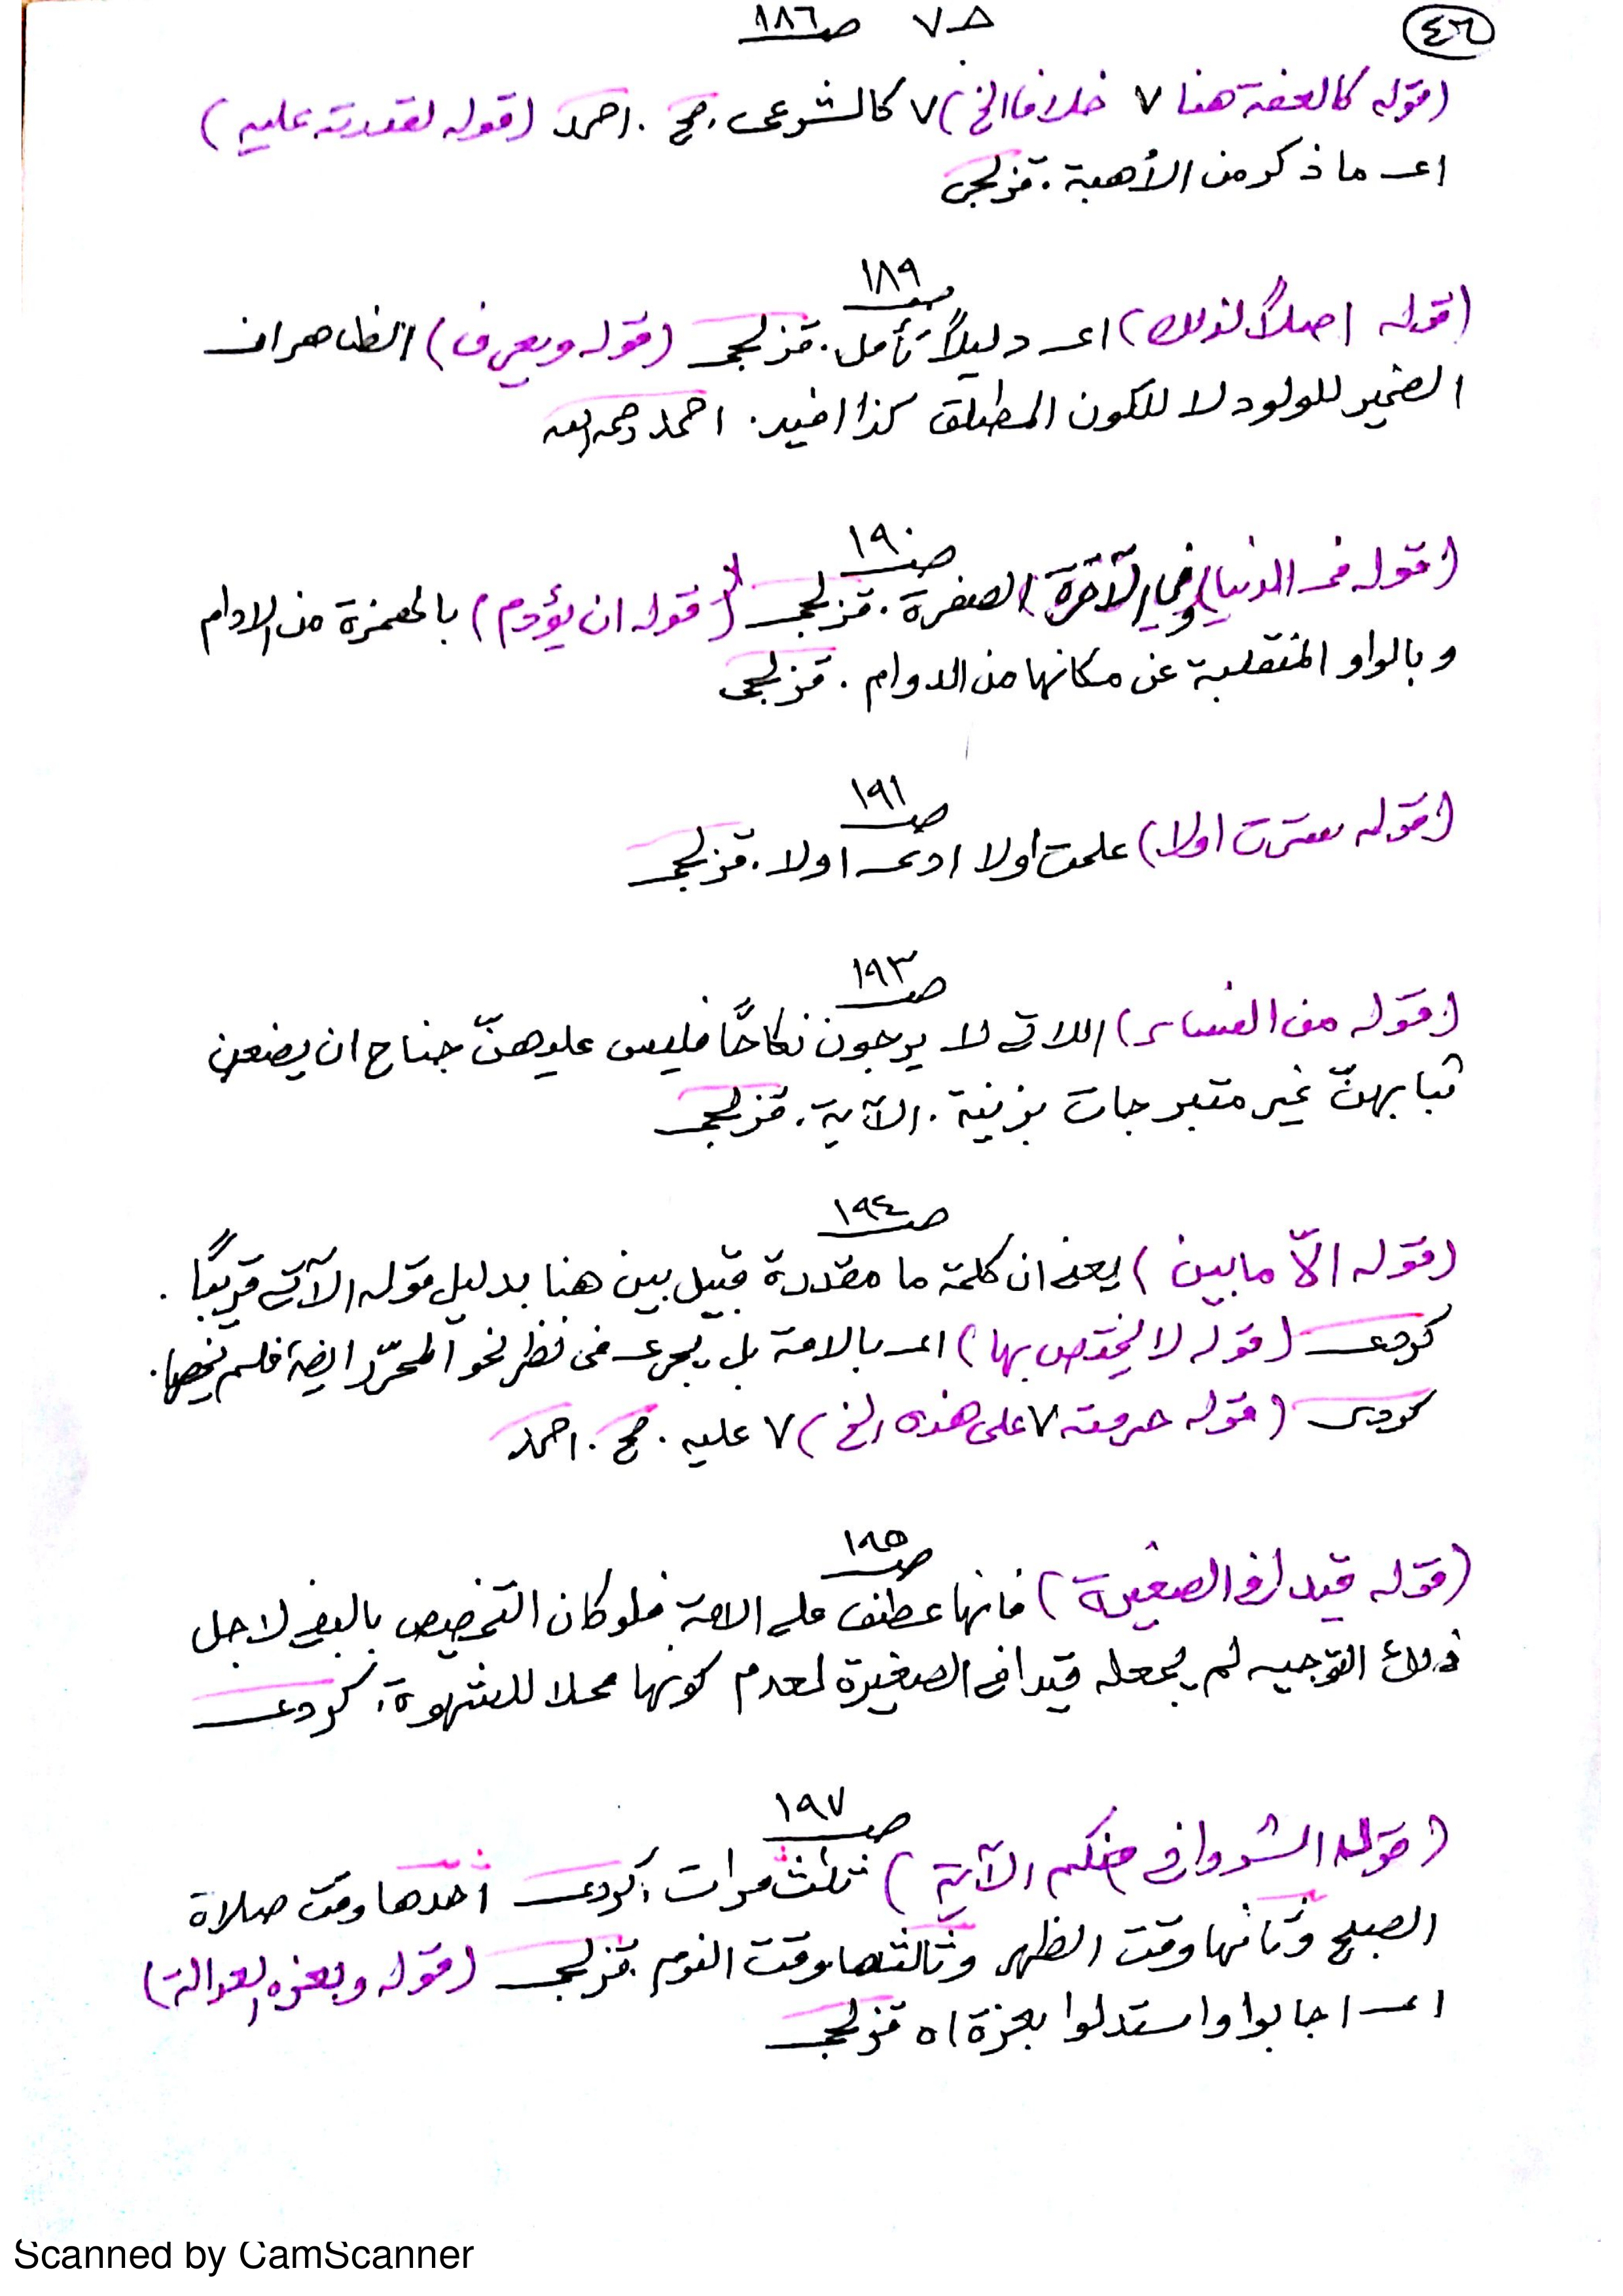 ٤٦
حـ ٧ صـ ١٨٦
(قوله كالعفة هنا ٧ خلافا الخ) ٧ كالشوعى. صح. احمد (قوله لقدرته عليه)
اى ما ذكر من الأهبة. قزلجى
صـ ١٨٩
(قوله اصلاً لذلك) اى دليلاً تأمل. قزلجى (قوله ويعرف) الظاهر ان
الضمير للولود لا للكون المطلق كذا افيد. احمد رحمه الله
صـ ١٩٠
(قوله فى الدنيا) وفي الآخرة الصفرة. قزلجى (قوله ان يؤدم) بالهمزة من الادام
وبالواو المنقلبة عن مكانها من الدوام. قزلجى
صـ ١٩١
(قوله سترت اولا) علمت اولا ادى اولا. قزلجى
صـ ١٩٣
(قوله من النساء) اللاتى لا يرجون نكاحًا فليس عليهنّ جناح ان يضعن
ثيابهنّ غير متبرجات بزينة. الآية. قزلجى
صـ ١٩٤
(قوله الاّ ما بين) يعنى ان كلمة ما مقدرة قبيل بين هنا بدليل قوله الآتى قريبًا.
كردى (قوله لا يختص بها) اى بالامة بل يجرى فى نظر نحو المحرّم ايضا فلم يخصها.
كردى (قوله حرمته ٧ على هذه الخ) ٧ عليه. صح. احمد
صـ ١٩٥
(قوله قيدا فى الصغيرة) فانها عطف على الامة فلو كان التخصيص بالبيض لاجل
ذلك التوجيه لم يجعله قيدا فى الصغيرة لعدم كونها محلا للشهوة. كردى
صـ ١٩٧
(قوله الشدوا فى منكم الآية) ثلث مرات. كردى احدها وقت صلاة
الصبح وثانها وقت الظهر وثالثها وقت النوم. قزلجى (قوله وبعزه العدالة)
اى اجابوا واستدلوا بعزة اه قزلجى
Scanned by CamScanner